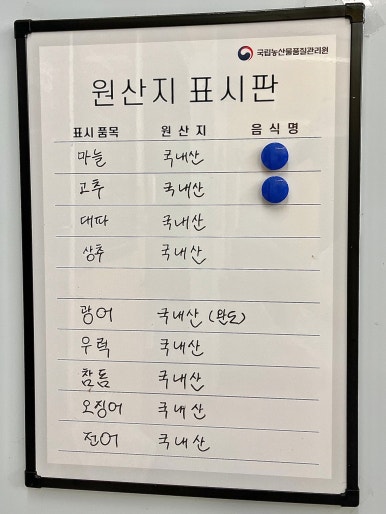 국립농산물품질관리원
원산지 표시판
표시품목 원산지 음식명
마늘 국내산
고추 국내산
대파 국내산
상추 국내산
광어 국내산 (완도)
우럭 국내산
참돔 국내산
오징어 국내산
전어 국내산